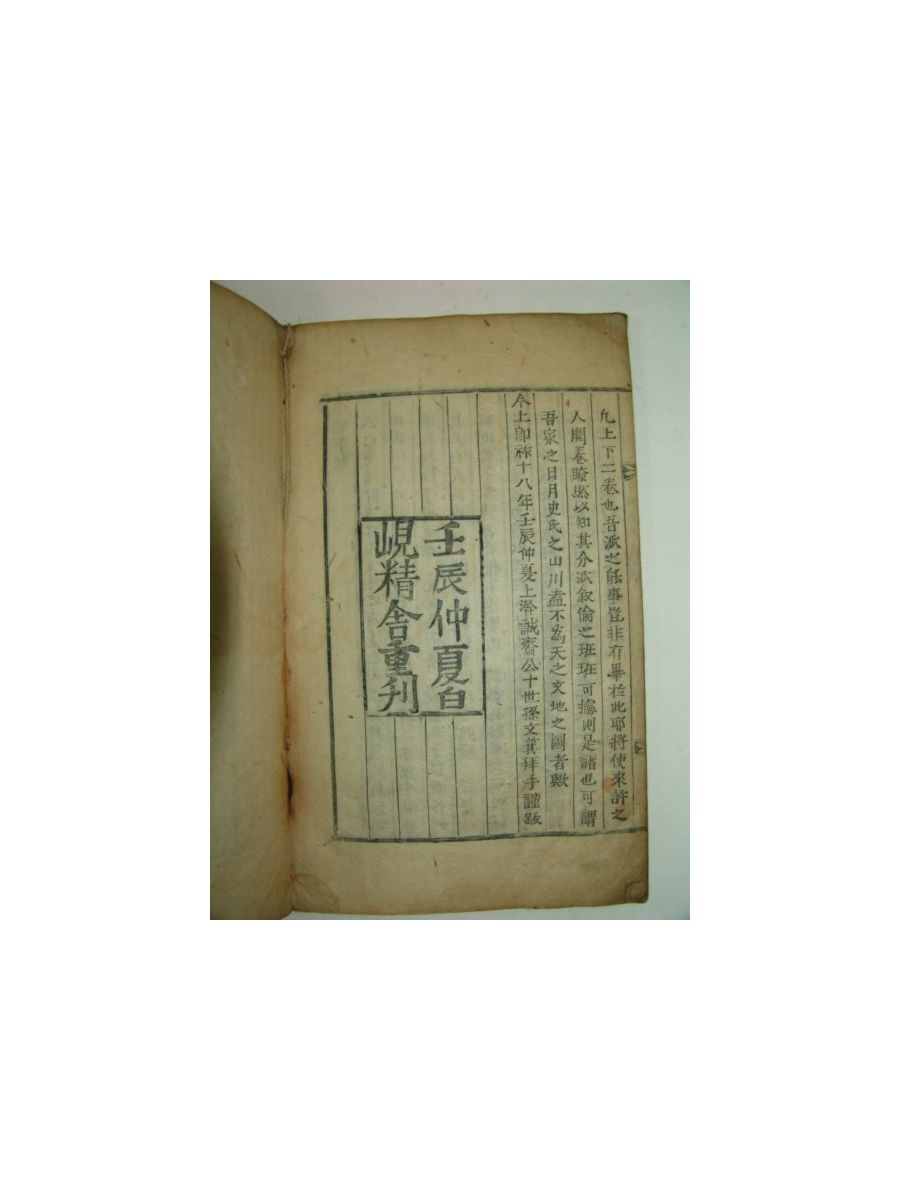 凡上下二卷也吾派之能事豈非有畢於此耶將使來許之
人開卷瞭然以知其分派叙倫之班班可據則是譜也可謂
吾家之日月史氏之山川盖不為天之文地之圖者歟
今上卽祚十八年壬辰仲夏上澣誠齋公十世孫文箕拜手謹跋
壬辰仲夏白
峴精舍重刋